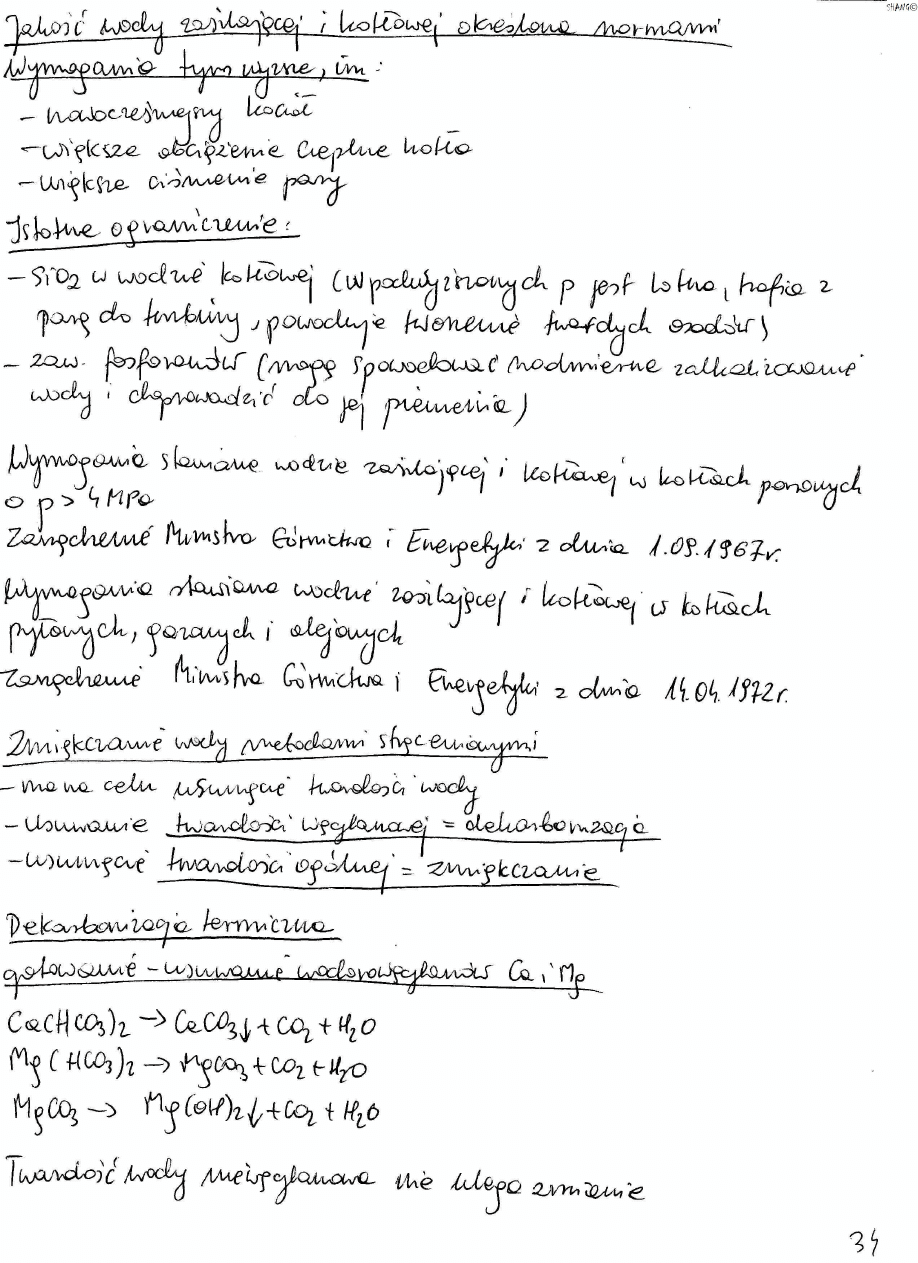 SHANG©
Jakość wody zasilającej i kotłowej określona normami
Wymagania tym wyższe, im:
- nowocześniejszy kocioł
- większe obciążenie cieplne kotła
- większe ciśnienie pary
Istotne ograniczenie:
- SiO2 w wodzie kotłowej (w podwyższonych p jest lotna, trafia z
parą do turbiny, powoduje tworzenie twardych osadów)
- zaw. fosforanów (mogą spowodować nadmierne zalkalizowanie
wody i doprowadzić do jej pienienia)
Wymagania stawiane wodzie zasilającej i kotłowej w kotłach parowych
o p > 4 MPa
Zarządzenie Ministra Górnictwa i Energetyki z dnia 1.09.1967r.
Wymagania stawiane wodzie zasilającej i kotłowej w kotłach
pyłowych, gazowych i olejowych
Zarządzenie Ministra Górnictwa i Energetyki z dnia 14.04.1972r.
Zmiękczanie wody metodami strąceniowymi
- ma na celu usunięcie twardości wody
- usuwanie twardości węglanowej = dekarbonizacja
- usunięcie twardości ogólnej = zmiękczanie
Dekarbonizacja termiczna
gotowanie - usuwanie wodorowęglanów Ca i Mg
Ca(HCO3)2 → CaCO3↓ + CO2 + H2O
Mg(HCO3)2 → MgCO3 + CO2 + H2O
MgCO3 → Mg(OH)2↓ + CO2 + H2O
Twardość wody niewęglanowa nie ulega zmianie
34